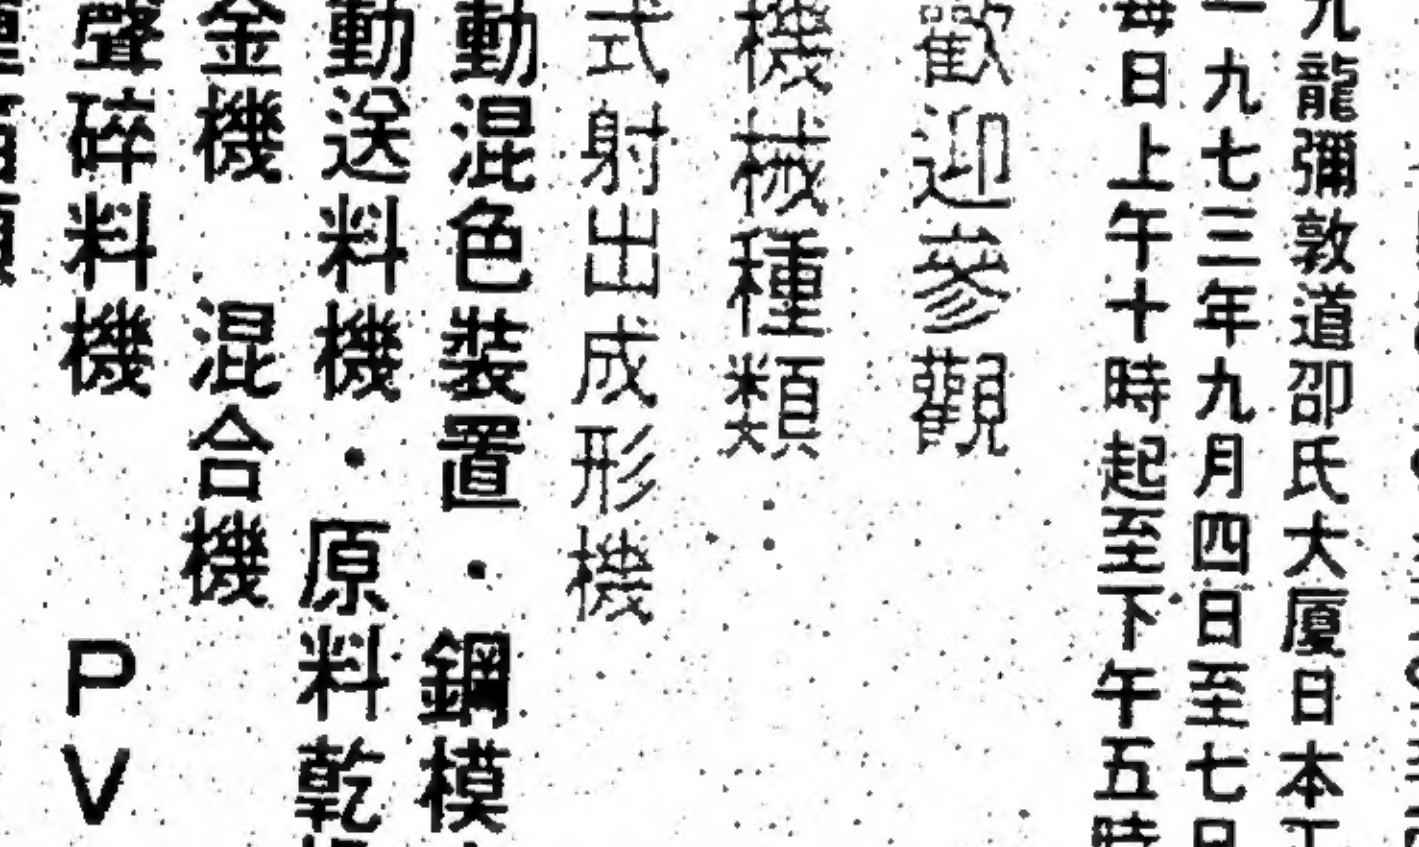 九龍彌敦道卲氏大廈日本工
一九七三年九月四日至七日
每日上午十時起至下午五時
歡迎參觀
機械種類：
式射出成形機
動混色裝置・鋼模
動送料機・原料乾
金機　混合機
聲碎料機　PV